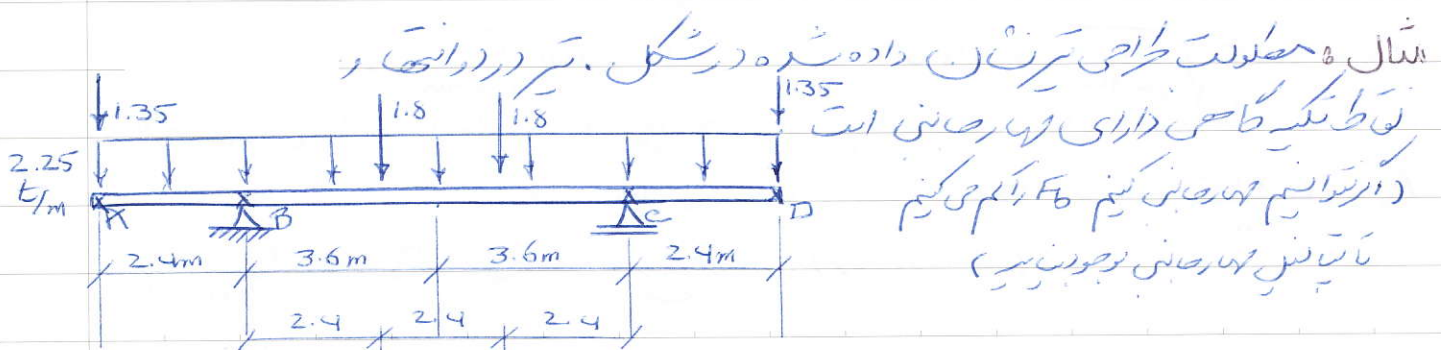 مثال : مطلوبست طراحی تیر نشان داده شده در شکل . تیر در دو انتها و
نقاط تکیه گاهی دارای مهار جانبی است
(اگر نتوانیم مهار جانبی کنیم Fb را کم می کنیم
تا پتانسیل مهار جانبی بوجود بیاید)
1.35 1.8 1.8 1.35
2.25
t/m
A B C D
2.4m 3.6m 3.6m 2.4m
2.4 2.4 2.4